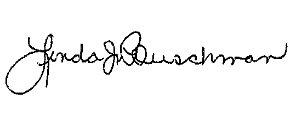 Linda J. Reuschman